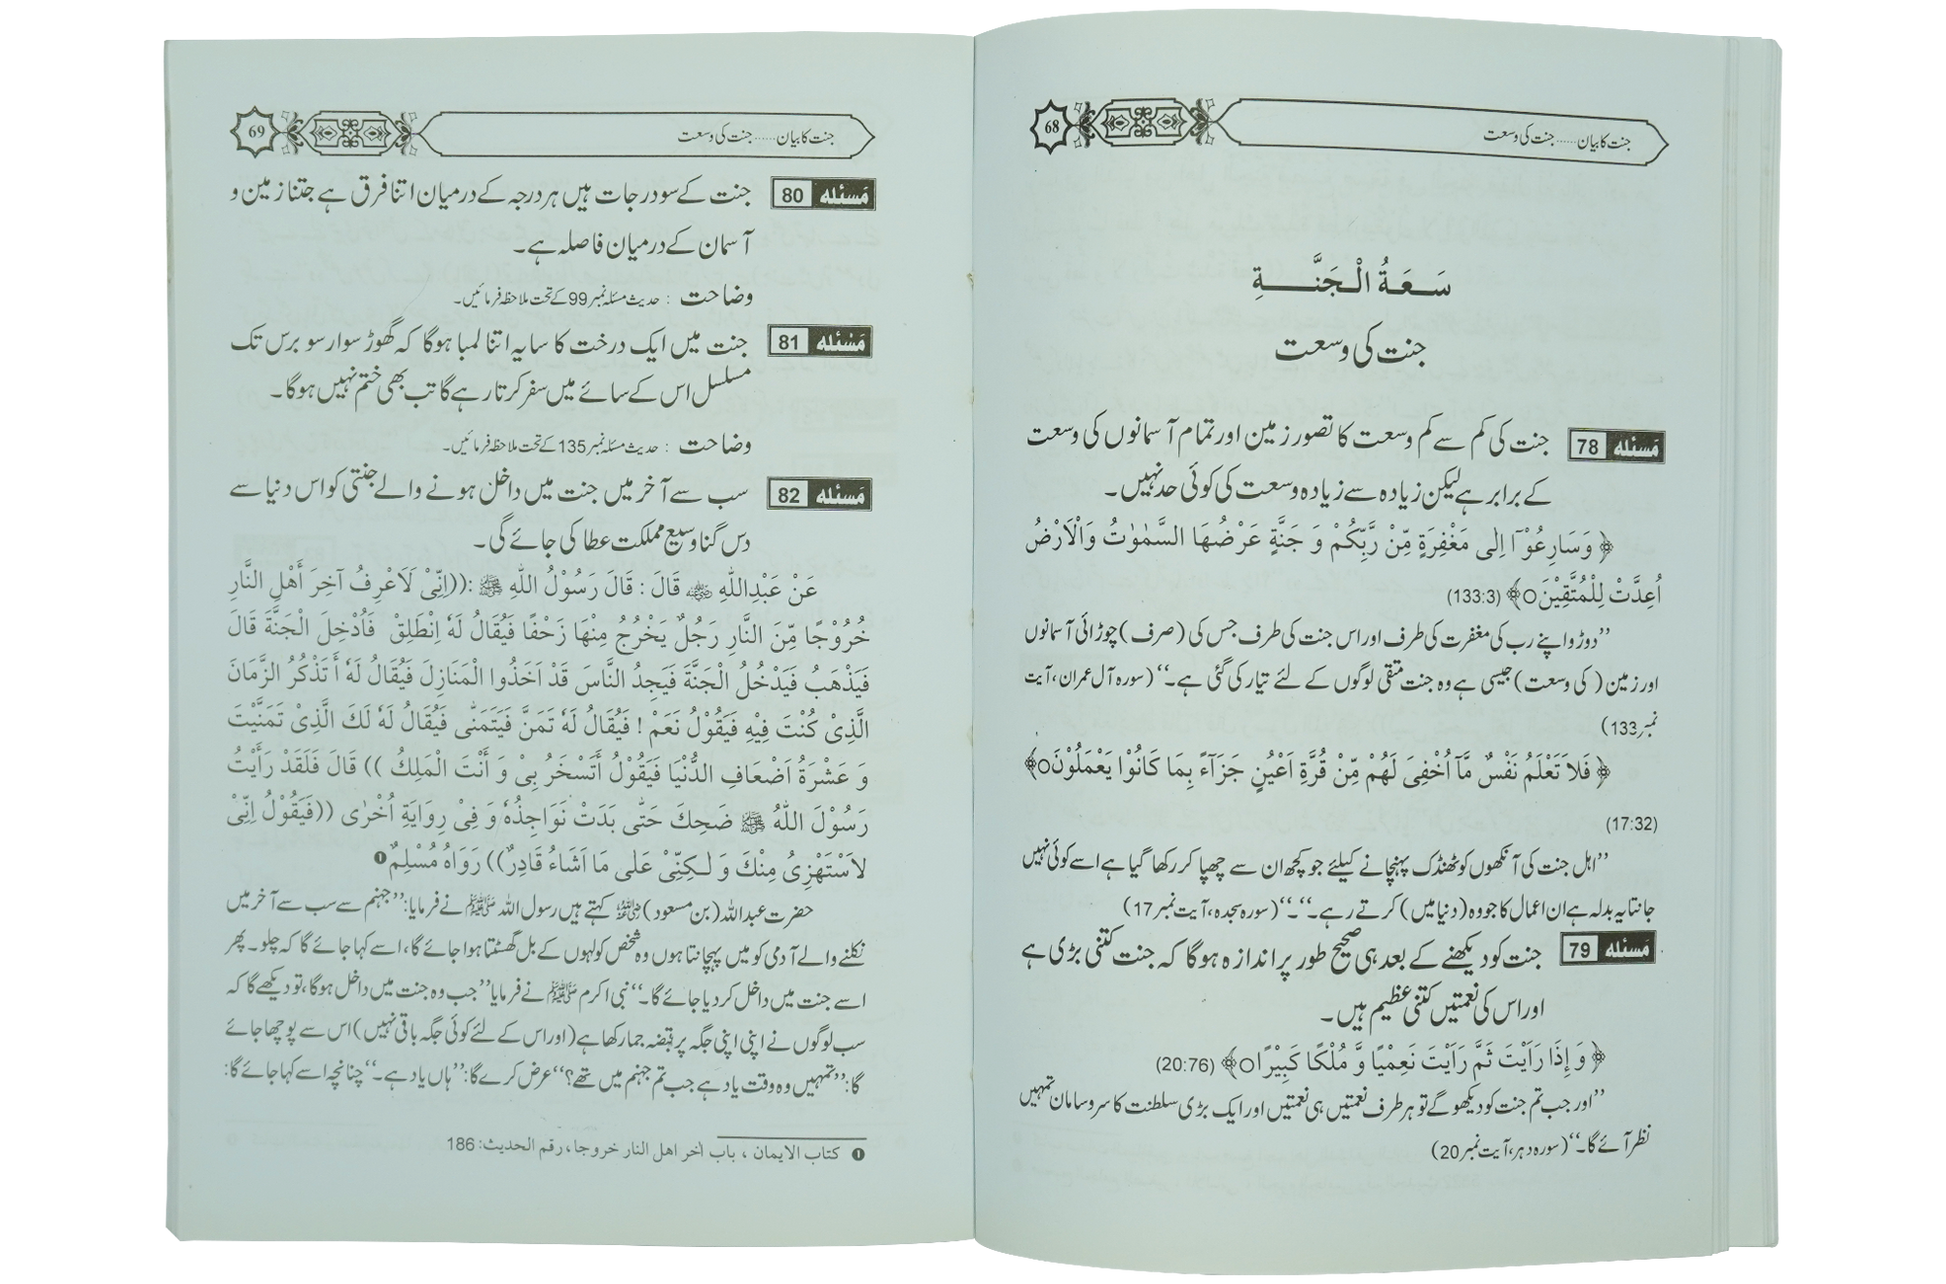 جنت کا بیان ...... جنت کی وسعت
68
سَـعَـةُ الْـجَنَّـــــةِ
جنت کی وسعت
مَسئله 78 جنت کی کم سے کم وسعت کا تصور زمین اور تمام آسمانوں کی وسعت
کے برابر ہے لیکن زیادہ سے زیادہ وسعت کی کوئی حد نہیں۔
﴿ وَسَارِعُوْآ اِلٰی مَغْفِرَةٍ مِّنْ رَّبِّكُمْ وَ جَنَّةٍ عَرْضُهَا السَّمٰوٰتُ وَالْاَرْضُ
اُعِدَّتْ لِلْمُتَّقِيْنَ○﴾ (133:3)
’’دوڑو اپنے رب کی مغفرت کی طرف اور اس جنت کی طرف جس کی (صرف) چوڑائی آسمانوں
اور زمین (کی وسعت) جیسی ہے وہ جنت متقی لوگوں کے لئے تیار کی گئی ہے۔‘‘ (سورہ آل عمران، آیت
نمبر 133)
﴿ فَلاَ تَعْلَمُ نَفْسٌ مَّآ اُخْفِیَ لَهُمْ مِّنْ قُرَّةِ اَعْيُنٍ جَزَآءً بِمَا كَانُوْا يَعْمَلُوْنَ○﴾
(17:32)
’’اہل جنت کی آنکھوں کو ٹھنڈک پہنچانے کیلئے جو کچھ ان سے چھپا کر رکھا گیا ہے اسے کوئی نہیں
جانتا یہ بدلہ ہے ان اعمال کا جو وہ (دنیا میں) کرتے رہے۔‘‘۔‘‘ (سورہ سجدہ، آیت نمبر 17)
مَسئله 79 جنت کو دیکھنے کے بعد ہی صحیح طور پر اندازہ ہوگا کہ جنت کتنی بڑی ہے
اور اس کی نعمتیں کتنی عظیم ہیں۔
﴿ وَ اِذَا رَاَيْتَ ثَمَّ رَاَيْتَ نَعِيْمًا وَّ مُلْكًا كَبِيْرًا○﴾ (20:76)
’’اور جب تم جنت کو دیکھو گے تو ہر طرف نعمتیں ہی نعمتیں اور ایک بڑی سلطنت کا سروسامان تمہیں
نظر آئے گا۔‘‘ (سورہ دہر، آیت نمبر 20)
جنت کا بیان ...... جنت کی وسعت
69
مَسئله 80 جنت کے سو درجات ہیں ہر درجہ کے درمیان اتنا فرق ہے جتنا زمین و
آسمان کے درمیان فاصلہ ہے۔
وضاحت : حدیث مسئلہ نمبر 99 کے تحت ملاحظہ فرمائیں۔
مَسئله 81 جنت میں ایک درخت کا سایہ اتنا لمبا ہوگا کہ گھوڑ سوار سو برس تک
مسلسل اس کے سائے میں سفر کرتا رہے گا تب بھی ختم نہیں ہوگا۔
وضاحت : حدیث مسئلہ نمبر 135 کے تحت ملاحظہ فرمائیں۔
مَسئله 82 سب سے آخر میں جنت میں داخل ہونے والے جنتی کو اس دنیا سے
دس گنا وسیع مملکت عطا کی جائے گی۔
عَنْ عَبْدِاللّٰهِ ؓ قَالَ : قَالَ رَسُوْلُ اللّٰهِ ﷺ :((اِنِّیْ لَاَعْرِفُ آخِرَ أَهْلِ النَّارِ
خُرُوْجًا مِّنَ النَّارِ رَجُلٌ يَخْرُجُ مِنْهَا زَحْفًا فَيُقَالُ لَهٗ اِنْطَلِقْ فَاُدْخِلَ الْجَنَّةَ قَالَ
فَيَذْهَبُ فَيَدْخُلُ الْجَنَّةَ فَيَجِدُ النَّاسَ قَدْ اَخَذُوا الْمَنَازِلَ فَيُقَالُ لَهٗ أَ تَذْكُرُ الزَّمَانَ
الَّذِیْ كُنْتَ فِيْهِ فَيَقُوْلُ نَعَمْ ! فَيُقَالُ لَهٗ تَمَنَّ فَيَتَمَنّٰی فَيُقَالُ لَهٗ لَكَ الَّذِیْ تَمَنَّيْتَ
وَ عَشْرَةُ اَضْعَافِ الدُّنْيَا فَيَقُوْلُ أَتَسْخَرُ بِیْ وَ أَنْتَ الْمَلِكُ )) قَالَ فَلَقَدْ رَأَيْتُ
رَسُوْلَ اللّٰهُ ﷺ ضَحِكَ حَتّٰی بَدَتْ نَوَاجِذُهٗ وَ فِیْ رِوَايَةِ اُخْرٰی ((فَيَقُوْلُ اِنِّیْ
لاَسْتَهْزِیُ مِنْكَ وَ لٰـكِنِّیْ عَلٰی مَا اَشَاءُ قَادِرٌ)) رَوَاهُ مُسْلِمٌ❶
حضرت عبداللہ (بن مسعود) ؓ کہتے ہیں رسول اللہ ﷺ نے فرمایا: ’’جہنم سے سب سے آخر میں
نکلنے والے آدمی کو میں پہچانتا ہوں وہ شخص کولہوں کے بل گھسٹتا ہوا جائے گا، اسے کہا جائے گا کہ چلو۔ پھر
اسے جنت میں داخل کر دیا جائے گا۔‘‘ نبی اکرم ﷺ نے فرمایا ’’جب وہ جنت میں داخل ہوگا، تو دیکھے گا کہ
سب لوگوں نے اپنی اپنی جگہ پر قبضہ جما رکھا ہے (اور اس کے لئے کوئی جگہ باقی نہیں) اس سے پوچھا جائے
گا: ’’تمہیں وہ وقت یاد ہے جب تم جہنم میں تھے؟‘‘ عرض کرے گا: ’’ہاں یاد ہے۔‘‘ چنانچہ اسے کہا جائے گا:
❶ كتاب الايمان ، باب آخر اهل النار خروجا، رقم الحديث: 186